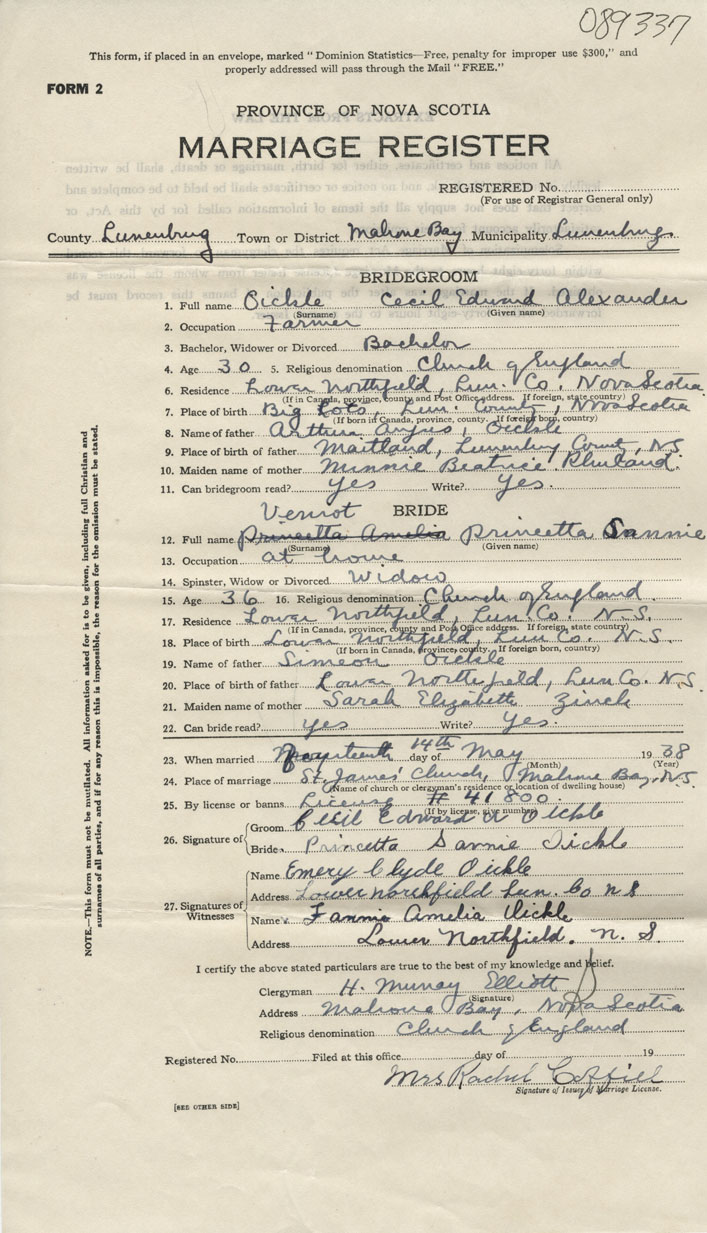 089337
This form, if placed in an envelope, marked "Dominion Statistics—Free, penalty for improper use $300," and
properly addressed will pass through the Mail "FREE."
FORM 2
PROVINCE OF NOVA SCOTIA
MARRIAGE REGISTER
REGISTERED No.
(For use of Registrar General only)
County Lunenburg Town or District Mahone Bay Municipality Lunenburg
BRIDEGROOM
1. Full name Oickle Cecil Edward Alexander
(Surname) (Given name)
2. Occupation Farmer
3. Bachelor, Widower or Divorced Bachelor
4. Age 30 5. Religious denomination Church of England
6. Residence Lower Northfield, Lun. Co. Nova Scotia
(If in Canada, province, county and Post Office address. If foreign, state country)
7. Place of birth Big Lots, Lun. County, Nova Scotia
(If born in Canada, province, county. If foreign born, country)
8. Name of father Arthur Angus, Oickle
9. Place of birth of father Maitland, Lunenburg County, N.S.
10. Maiden name of mother Minnie Beatrice Rhuland.
11. Can bridegroom read? Yes Write? Yes.
BRIDE
Vernot
12. Full name Princetta Amelia Princetta Sannie
(Surname) (Given name)
13. Occupation at home
14. Spinster, Widow or Divorced Widow
15. Age 36 16. Religious denomination Church of England
17. Residence Lower Northfield, Lun. Co. N.S.
(If in Canada, province, county and Post Office address. If foreign, state country)
18. Place of birth Lower Northfield, Lun Co. N.S.
(If born in Canada, province, county. If foreign born, country)
19. Name of father Simeon Oickle
20. Place of birth of father Lower Northfield, Lun Co. N.S.
21. Maiden name of mother Sarah Elizabeth Zinck
22. Can bride read? Yes Write? Yes.
23. When married Fourteenth 14th day of May 1938
(Month) (Year)
24. Place of marriage St. James' Church, Mahone Bay, N.S.
(Name of church or clergyman's residence or location of dwelling house)
25. By license or banns License # 41800
(If by license, give number)
26. Signature of Groom Cecil Edward A Oickle
Bride Princetta Sannie Oickle
27. Signatures of Witnesses
Name Emery Clyde Oickle
Address Lower Northfield Lun. Co N S
Name Fannie Amelia Oickle
Address Lower Northfield. N. S.
I certify the above stated particulars are true to the best of my knowledge and belief.
Clergyman H. Murray Elliott
(Signature)
Address Mahone Bay, Nova Scotia
Religious denomination Church of England
Registered No. Filed at this office day of 19
Mrs Rachel Coffill
Signature of Issuer of Marriage License.
[SEE OTHER SIDE]
NOTE.—This form must not be mutilated. All information asked for is to be given, including full Christian and
surnames of all parties, and if for any reason this is impossible, the reason for the omission must be stated.